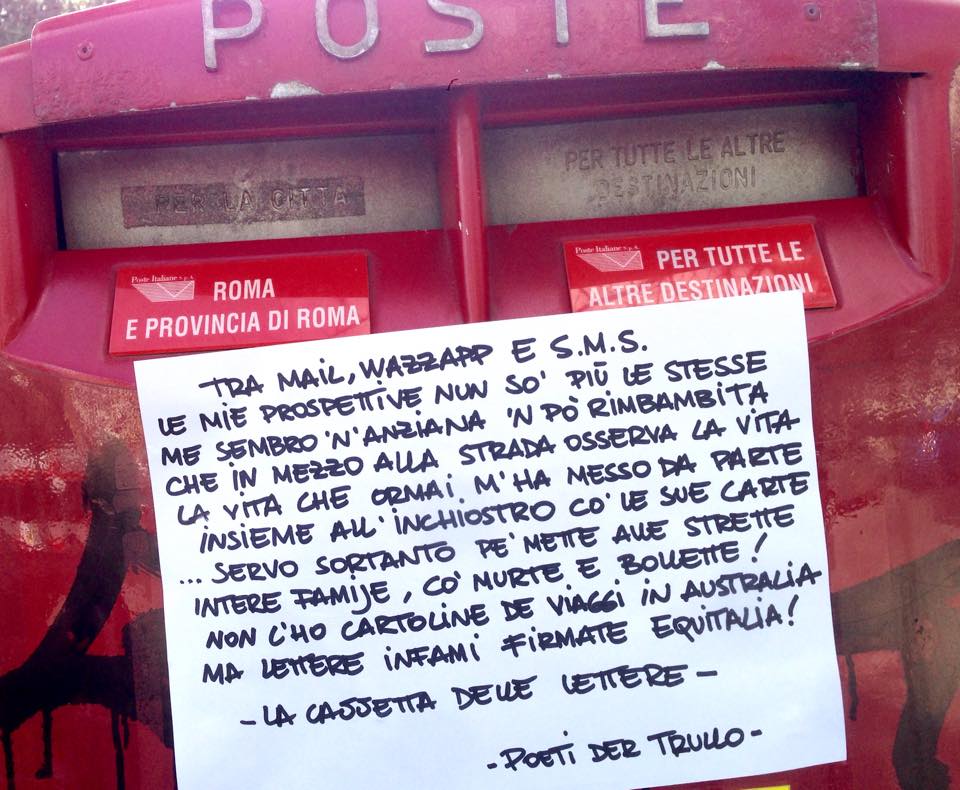 POSTE
PER LA CITTÀ
PER TUTTE LE ALTRE
DESTINAZIONI
Poste Italiane S.p.A.
ROMA
E PROVINCIA DI ROMA
Poste Italiane S.p.A.
PER TUTTE LE
ALTRE DESTINAZIONI
TRA MAIL, WAZZAPP E S.M.S.
LE MIE PROSPETTIVE NUN SO' PIÙ LE STESSE
ME SEMBRO 'N'ANZIANA 'N PÒ RIMBAMBITA
CHE IN MEZZO ALLA STRADA OSSERVA LA VITA
LA VITA CHE ORMAI M'HA MESSO DA PARTE
INSIEME ALL'INCHIOSTRO CO' LE SUE CARTE
... SERVO SORTANTO PE' METTE ALLE STRETTE
INTERE FAMIJE, CO' MURTE E BOLLETTE!
NON C'HO CARTOLINE DE VIAGGI IN AUSTRALIA
MA LETTERE INFAMI FIRMATE EQUITALIA!
- LA CASSETTA DELLE LETTERE -
- POETI DER TRULLO -